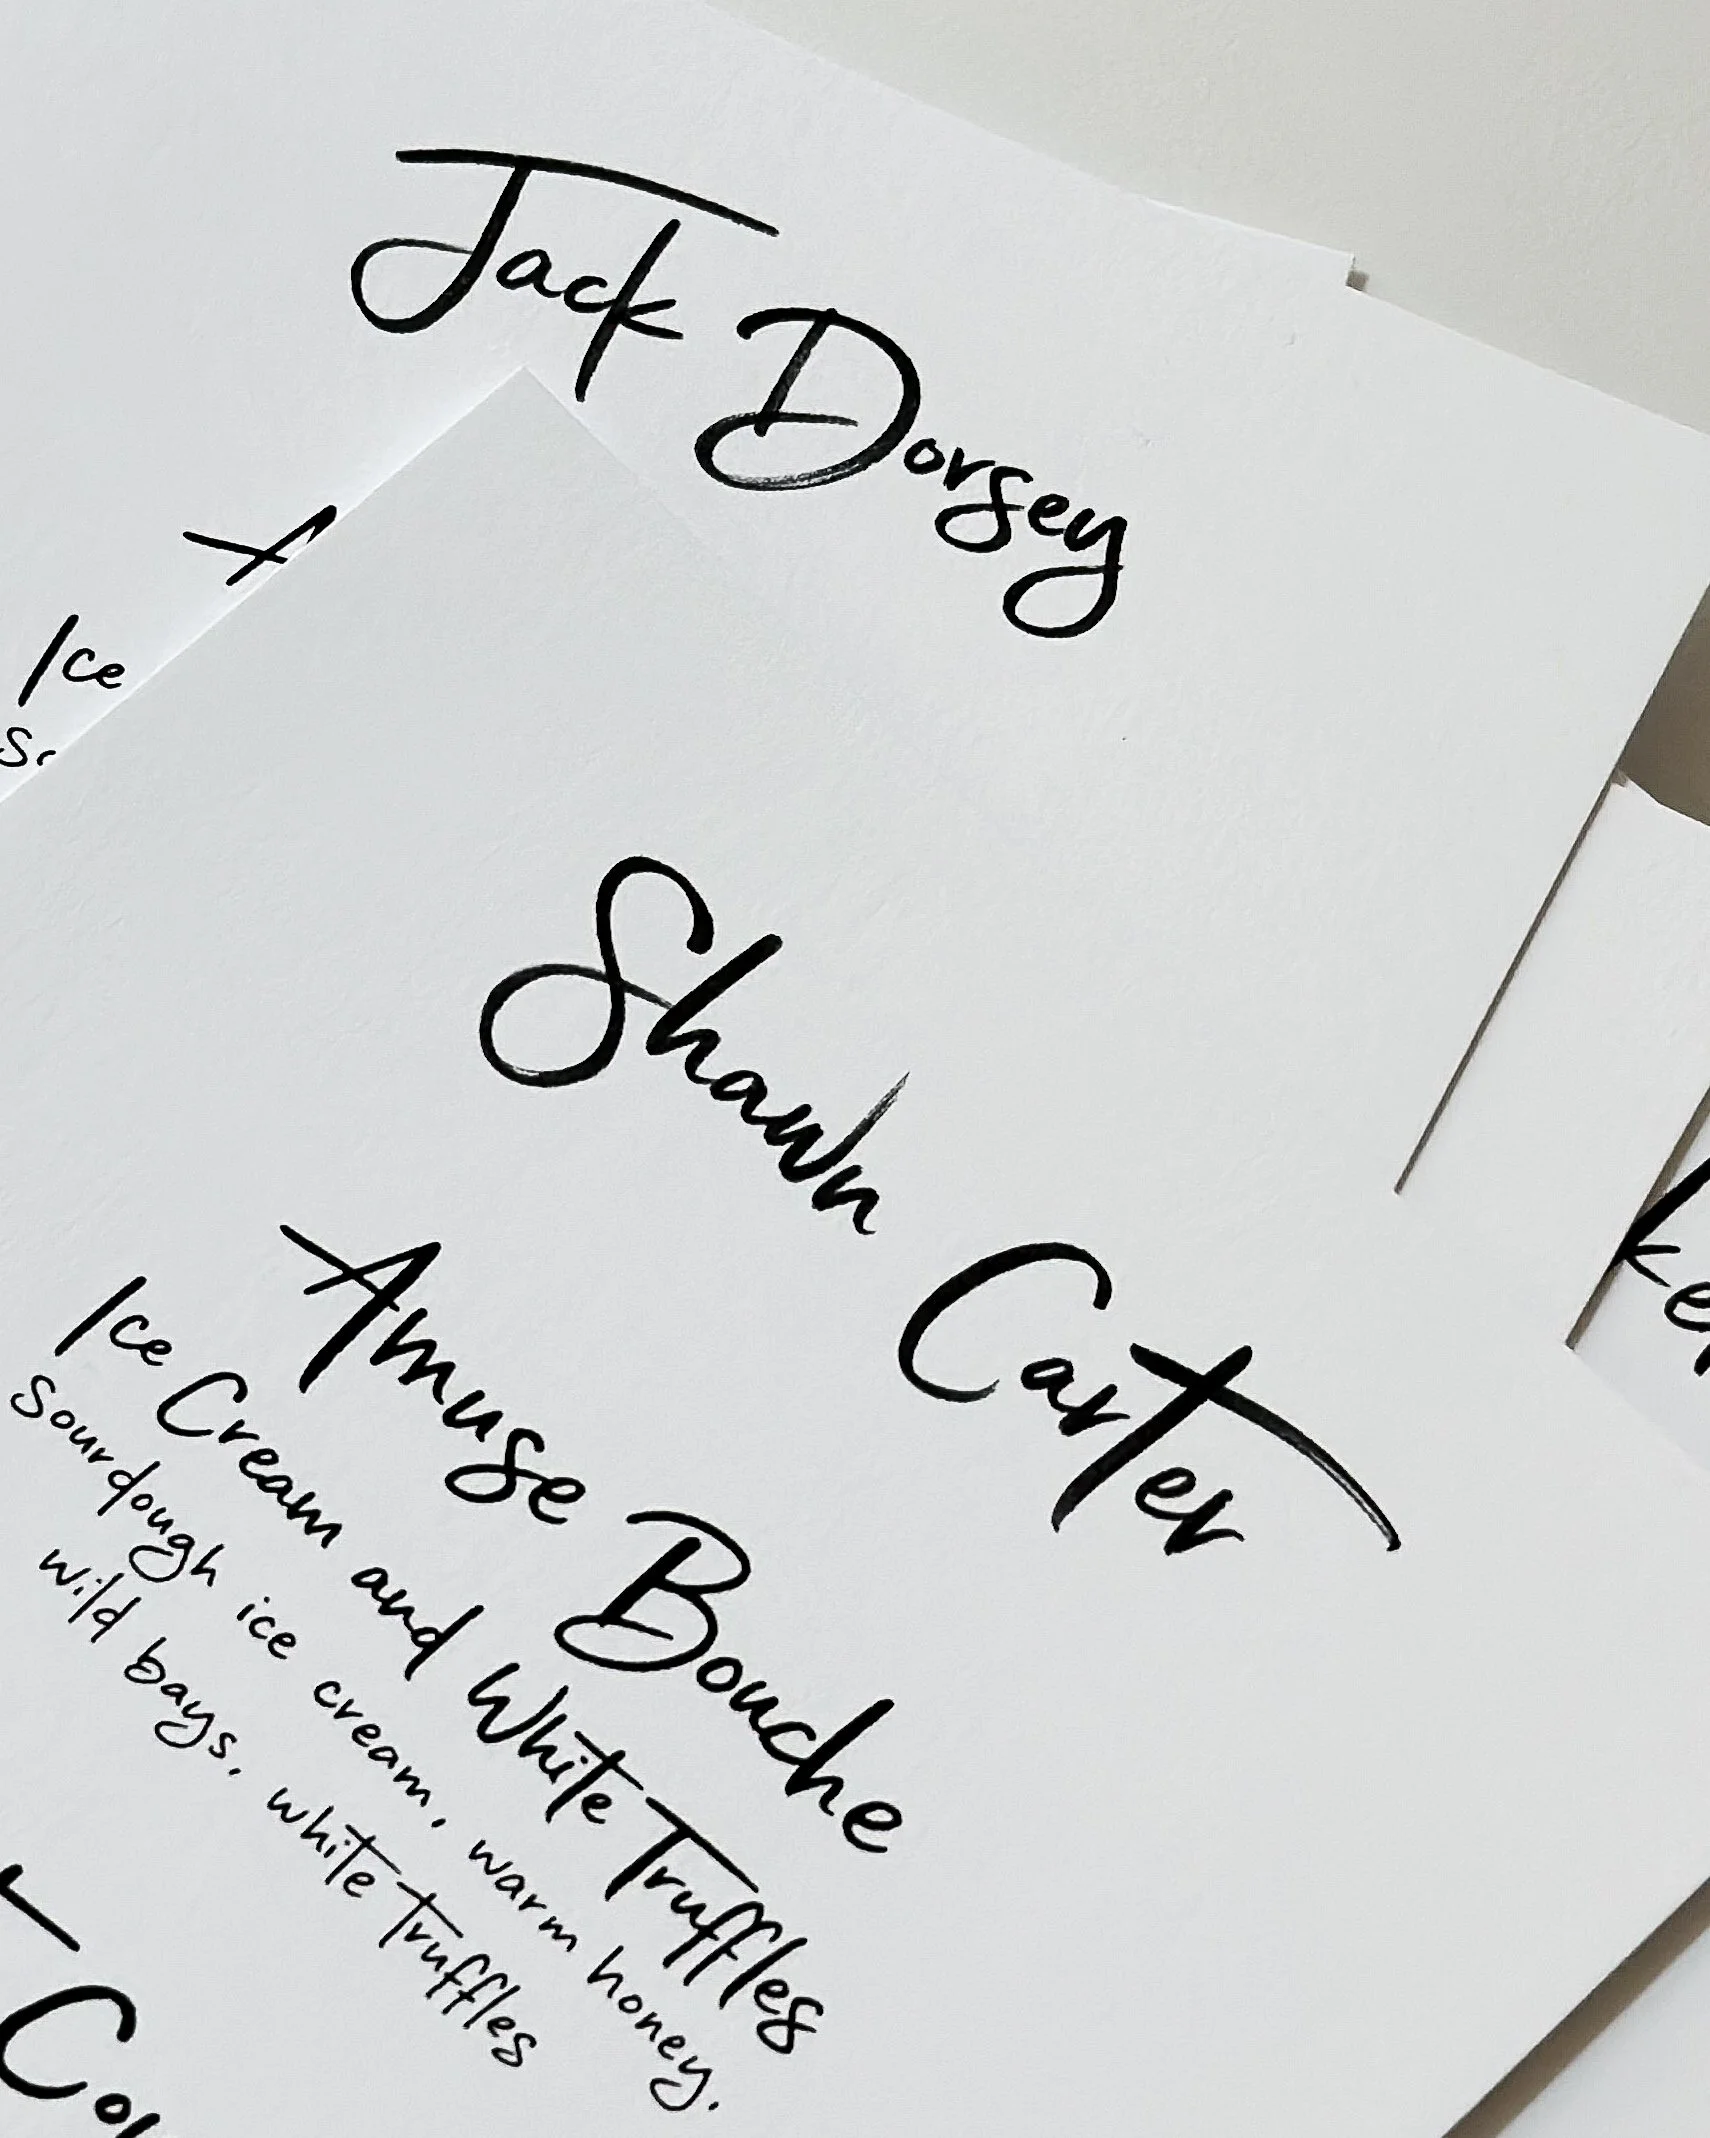 Jack Dorsey
Ice
Shawn Carter
Amuse Bouche
Ice Cream and White Truffles
Sourdough ice cream, warm honey,
wild bays, white truffles